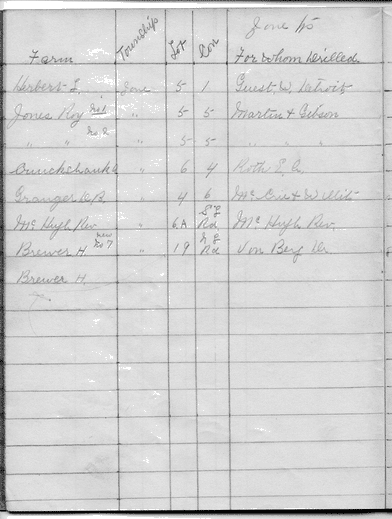 Farm Township Lot Con For Whom Drilled
Herbert L. 5 1 Guest W. Detroit
Jones Roy No 1 " 5 5 Martin & Gibson
" " No 2 " 5 5 " " "
" 6 4 Roth E. C.
Granger D.B. " 4 6
Mc Hugh Rev. " 6A Rd Mc Hugh Rev.
Brewer H. new No 7 " 19 Rd Von Berg
Brewer H.